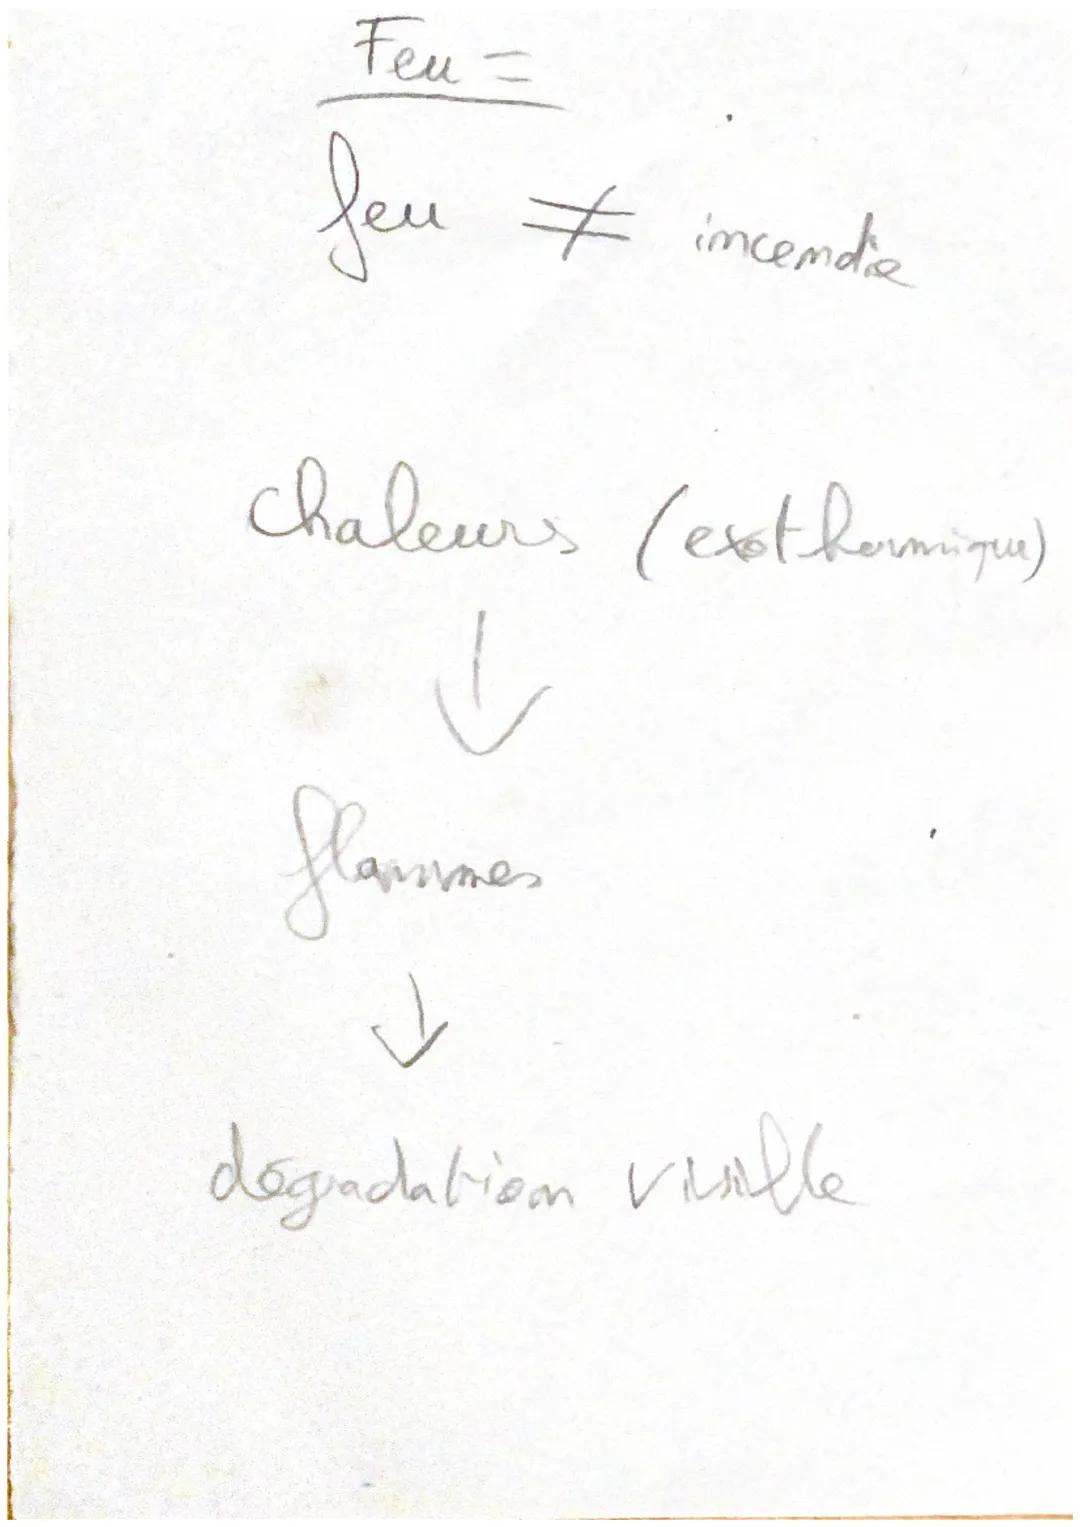 Feu =
feu ≠ incendie
chaleurs (exothermique)
↓
flammes
↓
dégradation visible